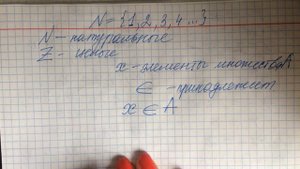 N = {1, 2, 3, 4 ...}
N - натуральные
Z - целые
x - элементы множества A
∈ - принадлежит
x ∈ A